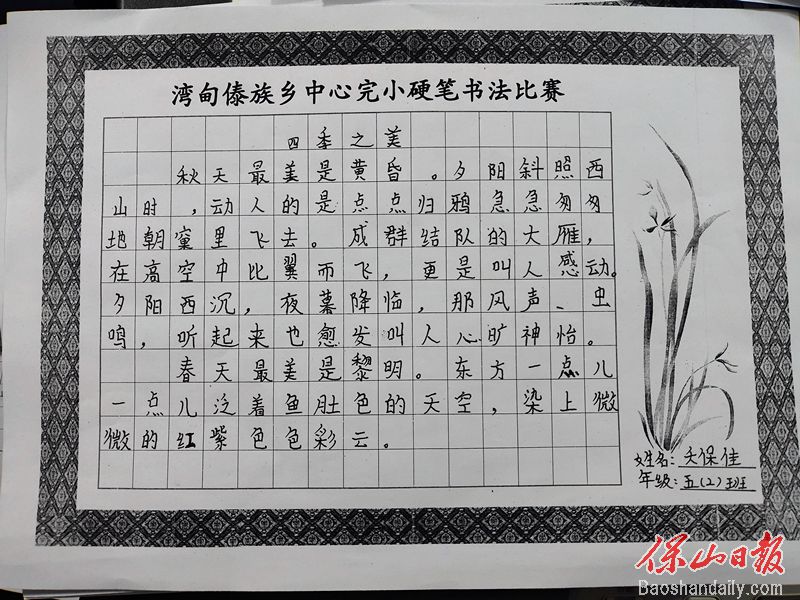 湾甸傣族乡中心完小硬笔书法比赛
四季之美
秋天最美是黄昏。夕阳斜照西
山时,动人的是点点归鸦急急匆匆
地朝窠里飞去。成群结队的大雁,
在高空中比翼而飞,更是叫人感动。
夕阳西沉,夜幕降临,那风声、虫
鸣,听起来也愈发叫人心旷神怡。
春天最美是黎明。东方一点儿
一点儿泛着鱼肚色的天空,染上微
微的红紫色色彩云。
姓名:保佳
年级:五(2)班
保山日报
Baoshandaily.com